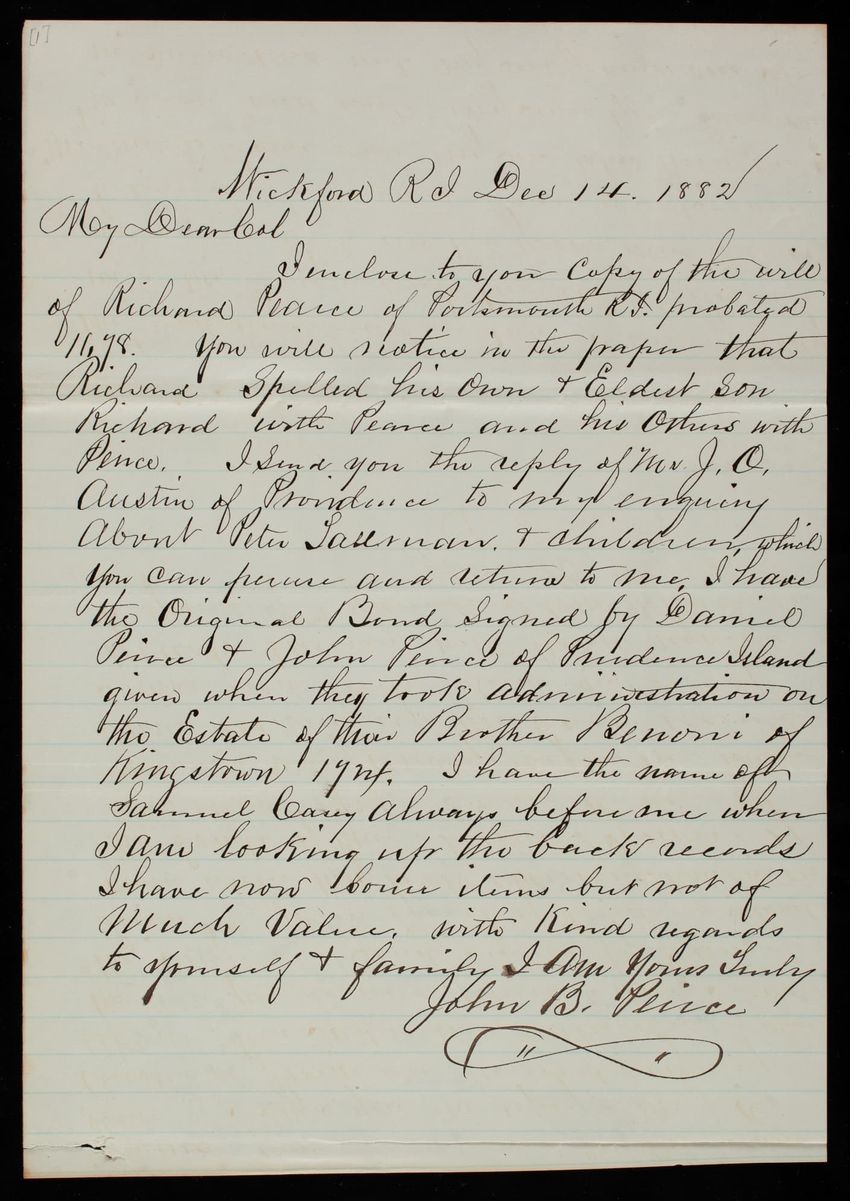 [1]
Wickford R I Dec 14. 1882
My Dear Col
I enclose to you Copy of the will
of Richard Pearce of Portsmouth R.I. probated
1678. You will notice in the paper that
Richard Spelled his Own & Eldest Son
Richard with Pearce and his Others with
Peirce. I Send you the reply of Mr J. O.
Austin of Providence to my enquiry
About Peter Tallman. & children, which
you can peruse and return to me, I have
the Original Bond Signed by Daniel
Peirce & John Peirce of Prudence Island
given when they took administration on
the Estate of their Brother Benoni of
Kingstown 1724. I have the name of
Samuel Casey Always before me when
I am looking up the back records
I have now some items but not of
Much Value. with Kind regards
to yourself & family I Am Yours Truly
John B. Peirce